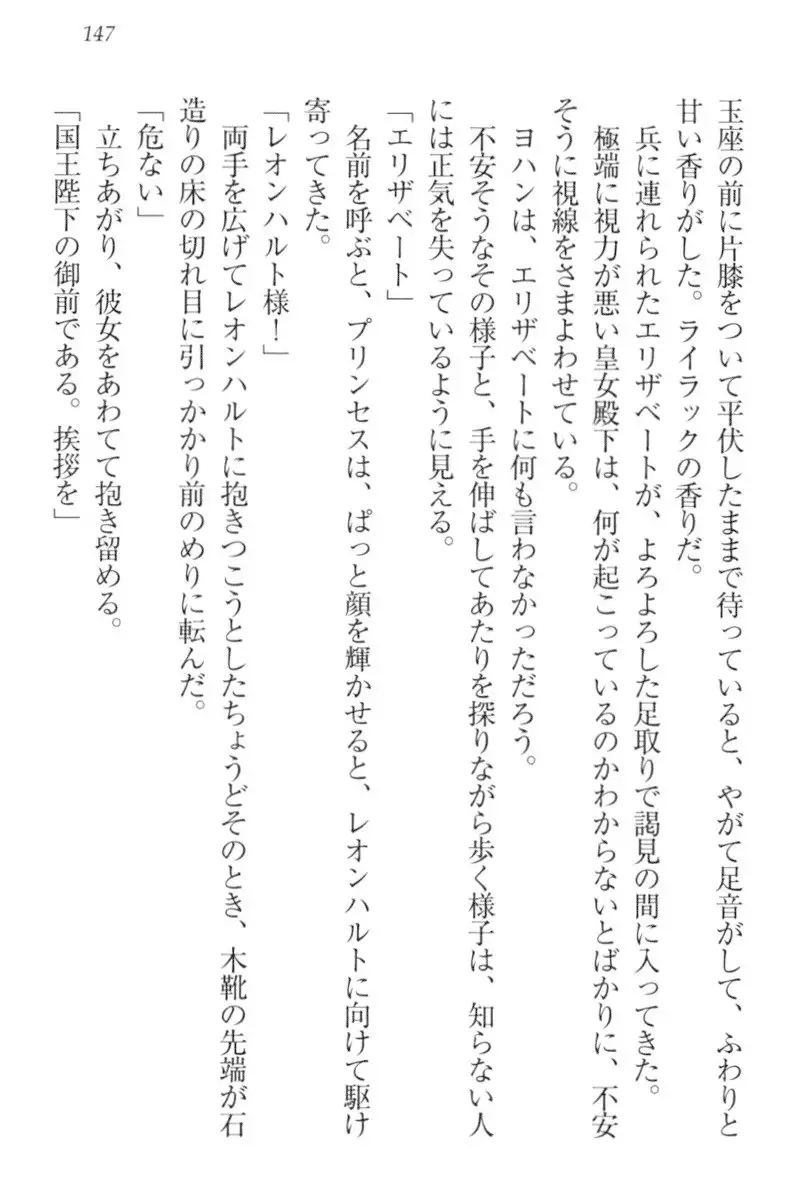 147
玉座の前に片膝をついて平伏したままで待っていると、やがて足音がして、ふわりと
甘い香りがした。ライラックの香りだ。
兵に連れられたエリザベートが、よろよろした足取りで謁見の間に入ってきた。
極端に視力が悪い皇女殿下は、何が起こっているのかわからないとばかりに、不安
そうに視線をさまよわせている。
ヨハンは、エリザベートに何も言わなかっただろう。
不安そうなその様子と、手を伸ばしてあたりを探りながら歩く様子は、知らない人
には正気を失っているように見える。
「エリザベート」
名前を呼ぶと、プリンセスは、ぱっと顔を輝かせると、レオンハルトに向けて駆け
寄ってきた。
「レオンハルト様！」
両手を広げてレオンハルトに抱きつこうとしたちょうどそのとき、木靴の先端が石
造りの床の切れ目に引っかかり前のめりに転んだ。
「危ない」
立ちあがり、彼女をあわてて抱き留める。
「国王陛下の御前である。挨拶を」